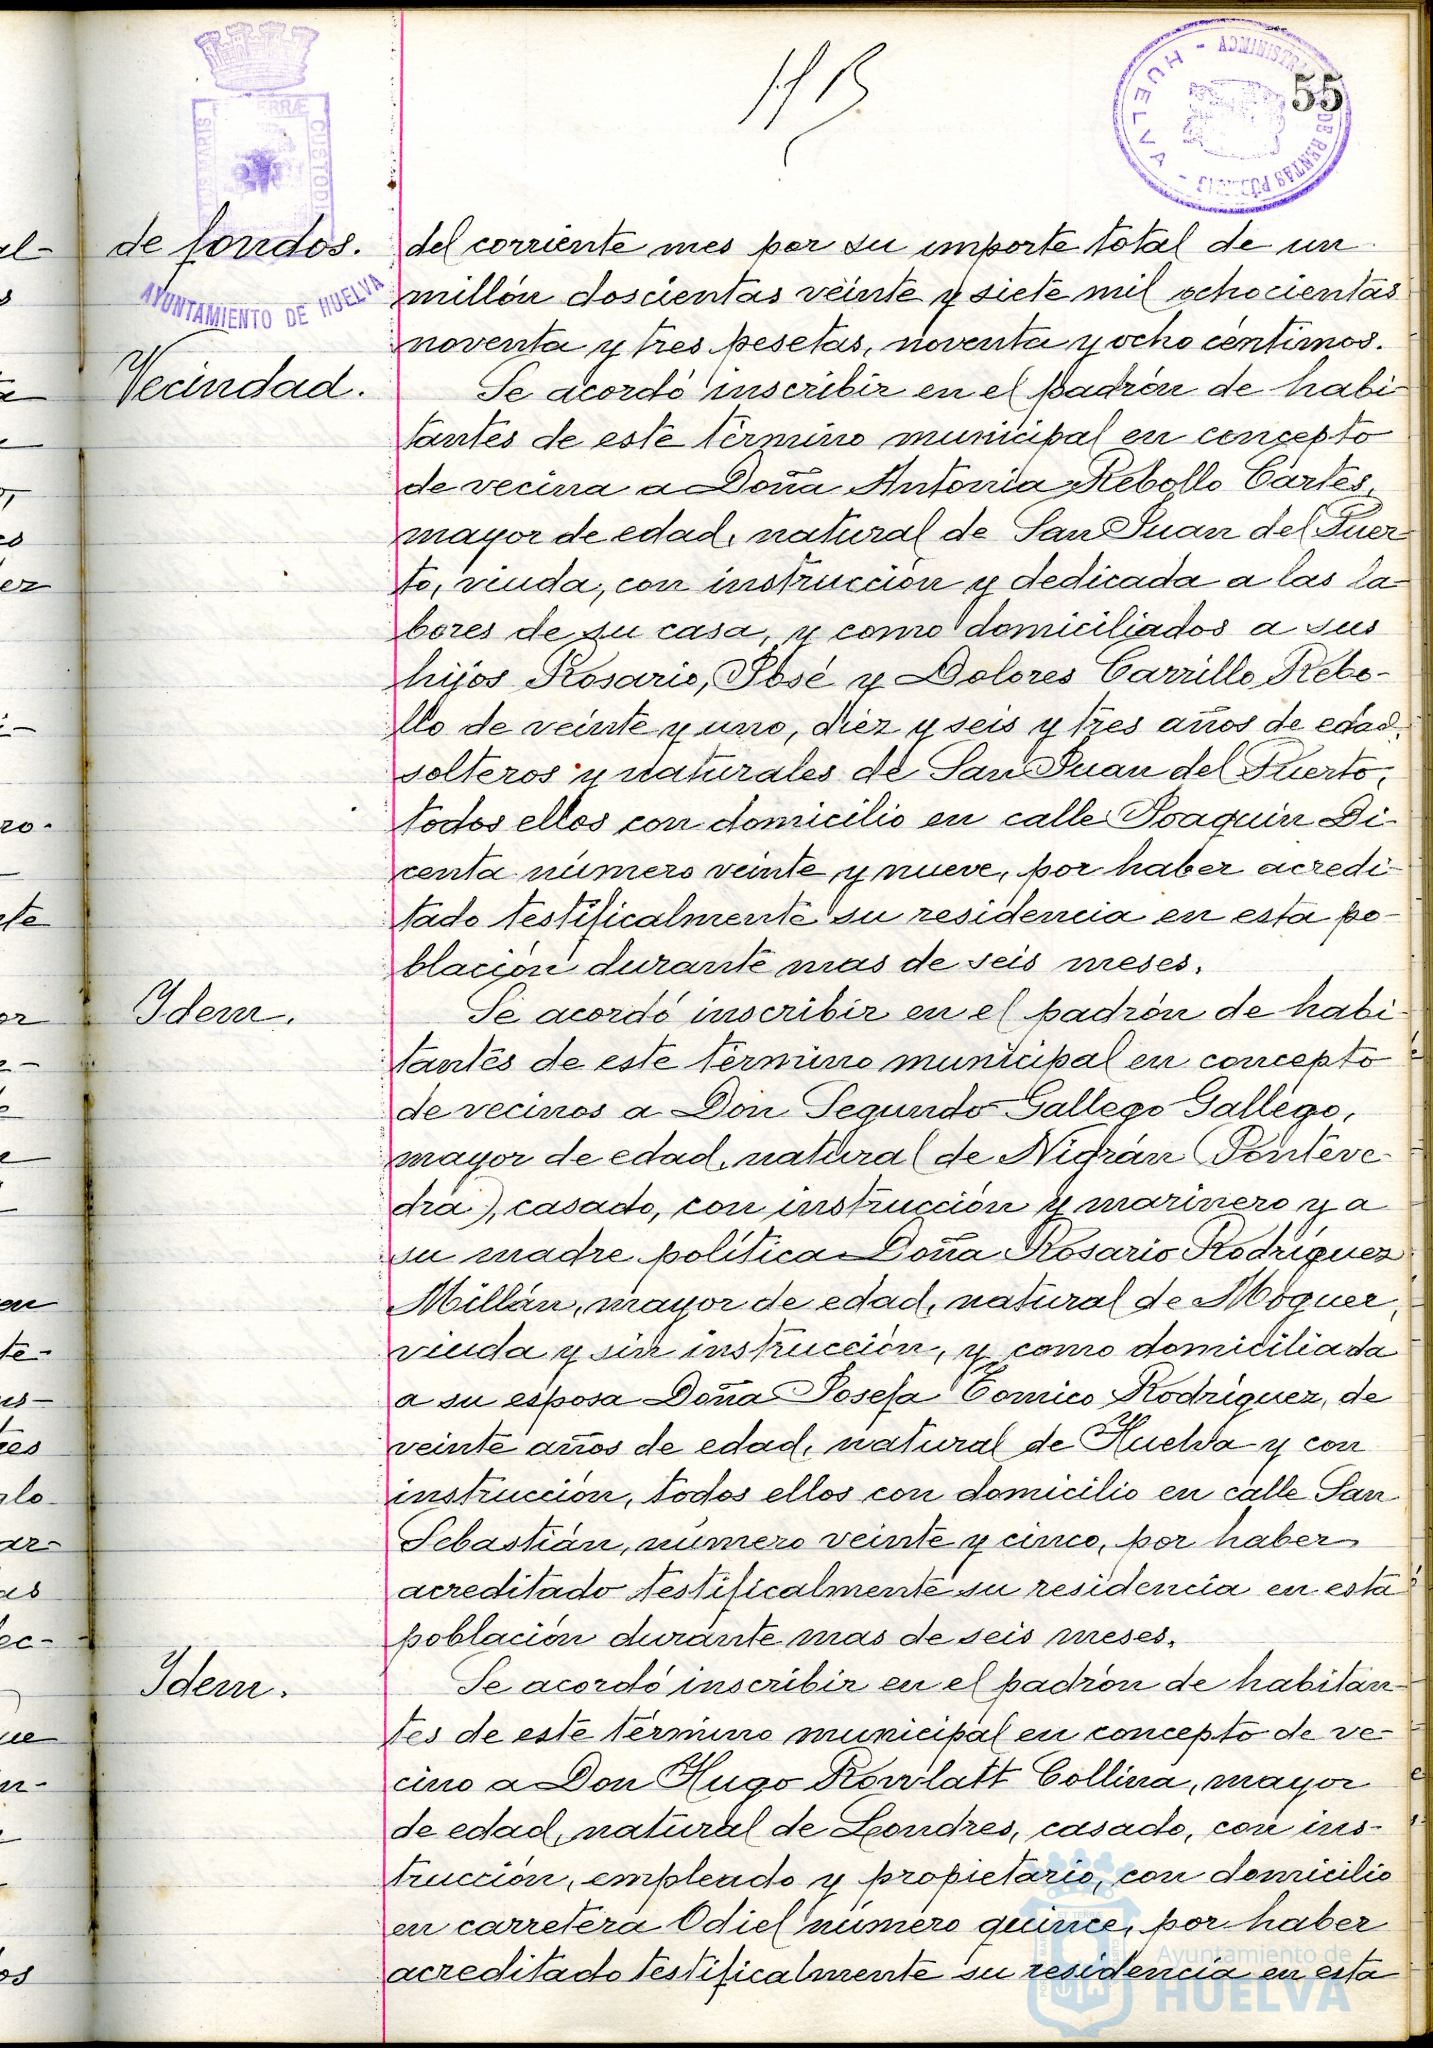 55
ADMINISTRACIÓN DE RENTAS PÚBLICAS - HUELVA -
CUSTODI
de fondos. del corriente mes por su importe total de un
AYUNTAMIENTO DE HUELVA
millón doscientas veinte y siete mil ochocientas
noventa y tres pesetas, noventa y ocho céntimos.
Vecindad. Se acordó inscribir en el padrón de habi-
tantes de este término municipal en concepto
de vecina a Doña Antonia Rebollo Cartes,
mayor de edad, natural de San Juan del Puer-
to, viuda, con instrucción y dedicada a las la-
bores de su casa, y como domiciliados a sus
hijos Rosario, José y Dolores Carrillo Rebo-
llo de veinte y uno, diez y seis y tres años de edad,
solteros y naturales de San Juan del Puerto,
todos ellos con domicilio en calle Joaquín Di-
centa número veinte y nueve, por haber acredi-
tado testificalmente su residencia en esta po-
blación durante mas de seis meses.
Idem. Se acordó inscribir en el padrón de habi-
tantes de este término municipal en concepto
de vecinos a Don Segundo Gallego Gallego,
mayor de edad, natural de Nigrán (Ponteve-
dra), casado, con instrucción y marinero y a
su madre política Doña Rosario Rodríguez
Millán, mayor de edad, natural de Moguer,
viuda y sin instrucción, y como domiciliada
a su esposa Doña Josefa Tomico Rodríguez, de
veinte años de edad, natural de Huelva y con
instrucción, todos ellos con domicilio en calle San
Sebastián, número veinte y cinco, por haber
acreditado testificalmente su residencia en esta
población durante mas de seis meses.
Idem. Se acordó inscribir en el padrón de habitan-
tes de este término municipal en concepto de ve-
cino a Don Hugo Rowlatt Collina, mayor
de edad, natural de Londres, casado, con ins-
trucción, empleado y propietario, con domicilio
en carretera Odiel número quince, por haber
acreditado testificalmente su residencia en esta
Ayuntamiento de
HUELVA